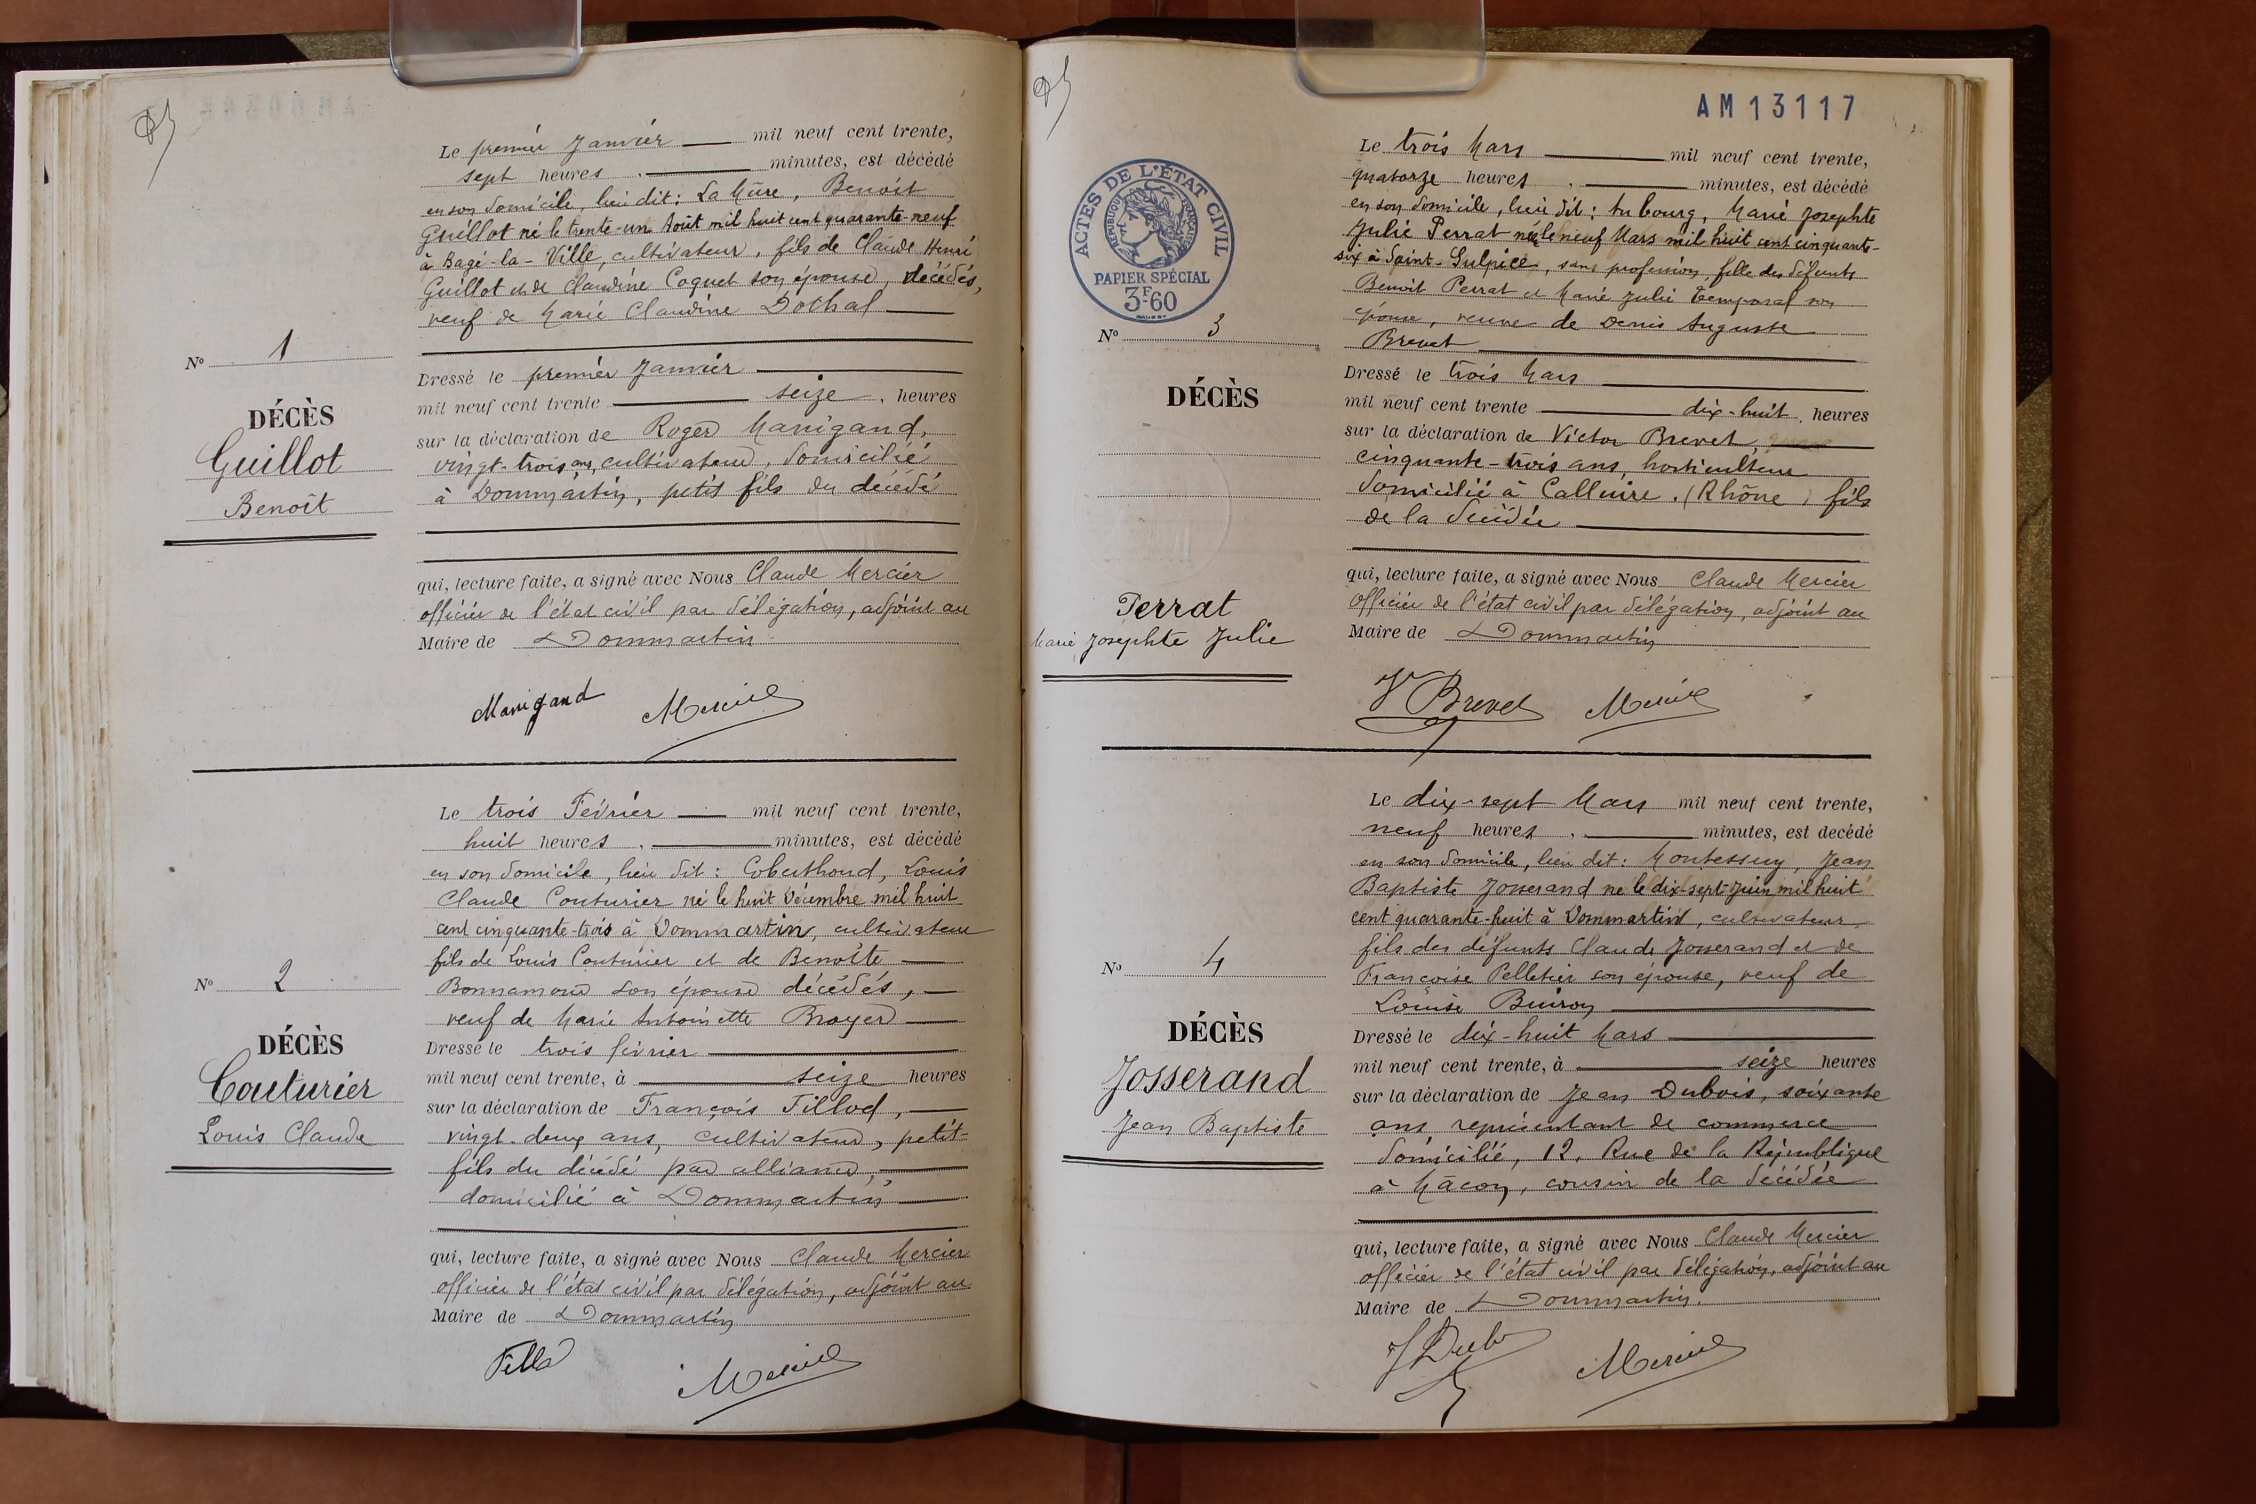 Le premier Janvier mil neuf cent trente,
sept heures minutes, est décédé
en son domicile, lieu dit : La Mûre, Benoît
Guillot né le trente-un Août mil huit cent quarante-neuf
à Bagé-la-Ville, cultivateur, fils de Claude Henri
Guillot et de Claudine Coquet son épouse, décédés,
veuf de Marie Claudine Dothal
N° 1
DÉCÈS
Guillot
Benoît
Dressé le premier Janvier
mil neuf cent trente seize heures
sur la déclaration de Roger Manigand,
vingt-trois ans, cultivateur, domicilié
à Dommartin, petit fils du décédé
qui, lecture faite, a signé avec Nous Claude Mercier
officier de l'état civil par délégation, adjoint au
Maire de Dommartin
Manigand Mercier
Le trois Février mil neuf cent trente,
huit heures minutes, est décédé
en son domicile, lieu dit : Coberthoud, Louis
Claude Couturier né le huit Décembre mil huit
cent cinquante-trois à Dommartin, cultivateur
fils de Louis Couturier et de Benoîte
Bonnamour son épouse décédés,
veuf de Marie Antoinette Broyer
N° 2
DÉCÈS
Couturier
Louis Claude
Dressé le trois février
mil neuf cent trente, à seize heures
sur la déclaration de François Tillod,
vingt-deux ans, cultivateur, petit-
fils du décédé par alliance,
domicilié à Dommartin
qui, lecture faite, a signé avec Nous Claude Mercier
officier de l'état civil par délégation, adjoint au
Maire de Dommartin
Mercier
AM13117
ACTES DE L'ÉTAT CIVIL
RÉPUBLIQUE FRANÇAISE
PAPIER SPÉCIAL
3F60
Le trois Mars mil neuf cent trente,
quatorze heures minutes, est décédé
en son domicile, lieu dit : Au bourg, Marie Josephte
Julie Perrat née le neuf Mars mil huit cent cinquante-
six à Saint-Sulpice, sans profession, fille des défunts
Benoit Perrat et Marie Julie Temporal son
épouse, veuve de Denis Auguste
Brevet
N° 3
DÉCÈS
Perrat
Marie Josephte Julie
Dressé le trois Mars
mil neuf cent trente dix-huit heures
sur la déclaration de Victor Brevet
cinquante-trois ans, horticulteur
domicilié à Calluire. (Rhône) fils
de la décédée
qui, lecture faite, a signé avec Nous Claude Mercier
officier de l'état civil par délégation, adjoint au
Maire de Dommartin
V Brevet Mercier
Le dix-sept Mars mil neuf cent trente,
neuf heures minutes, est decédé
en son domicile, lieu dit : Montessuy, Jean
Baptiste Josserand né le dix-sept Juin mil huit
cent quarante-huit à Dommartin, cultivateur
fils des défunts Claude Josserand et de
Françoise Pelletier son épouse, veuf de
Louise Buiron
N° 4
DÉCÈS
Josserand
Jean Baptiste
Dressé le dix-huit Mars
mil neuf cent trente, à seize heures
sur la déclaration de Jean Dubois, soixante
ans représentant de commerce
domicilié, 12, Rue de la République
à Macon, cousin de la décédée
qui, lecture faite, a signé avec Nous Claude Mercier
officier de l'état civil par délégation, adjoint au
Maire de Dommartin.
Mercier